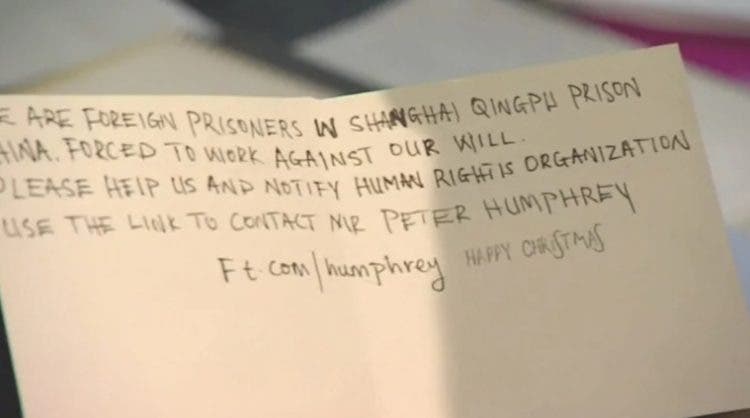 E ARE FOREIGN PRISONERS IN SHANGHAI QINGPU PRISON
HINA. FORCED TO WORK AGAINST OUR WILL.
PLEASE HELP US AND NOTIFY HUMAN RIGHTS ORGANIZATION
USE THE LINK TO CONTACT MR PETER HUMPHREY
Ft.com/humphrey HAPPY CHRISTMAS